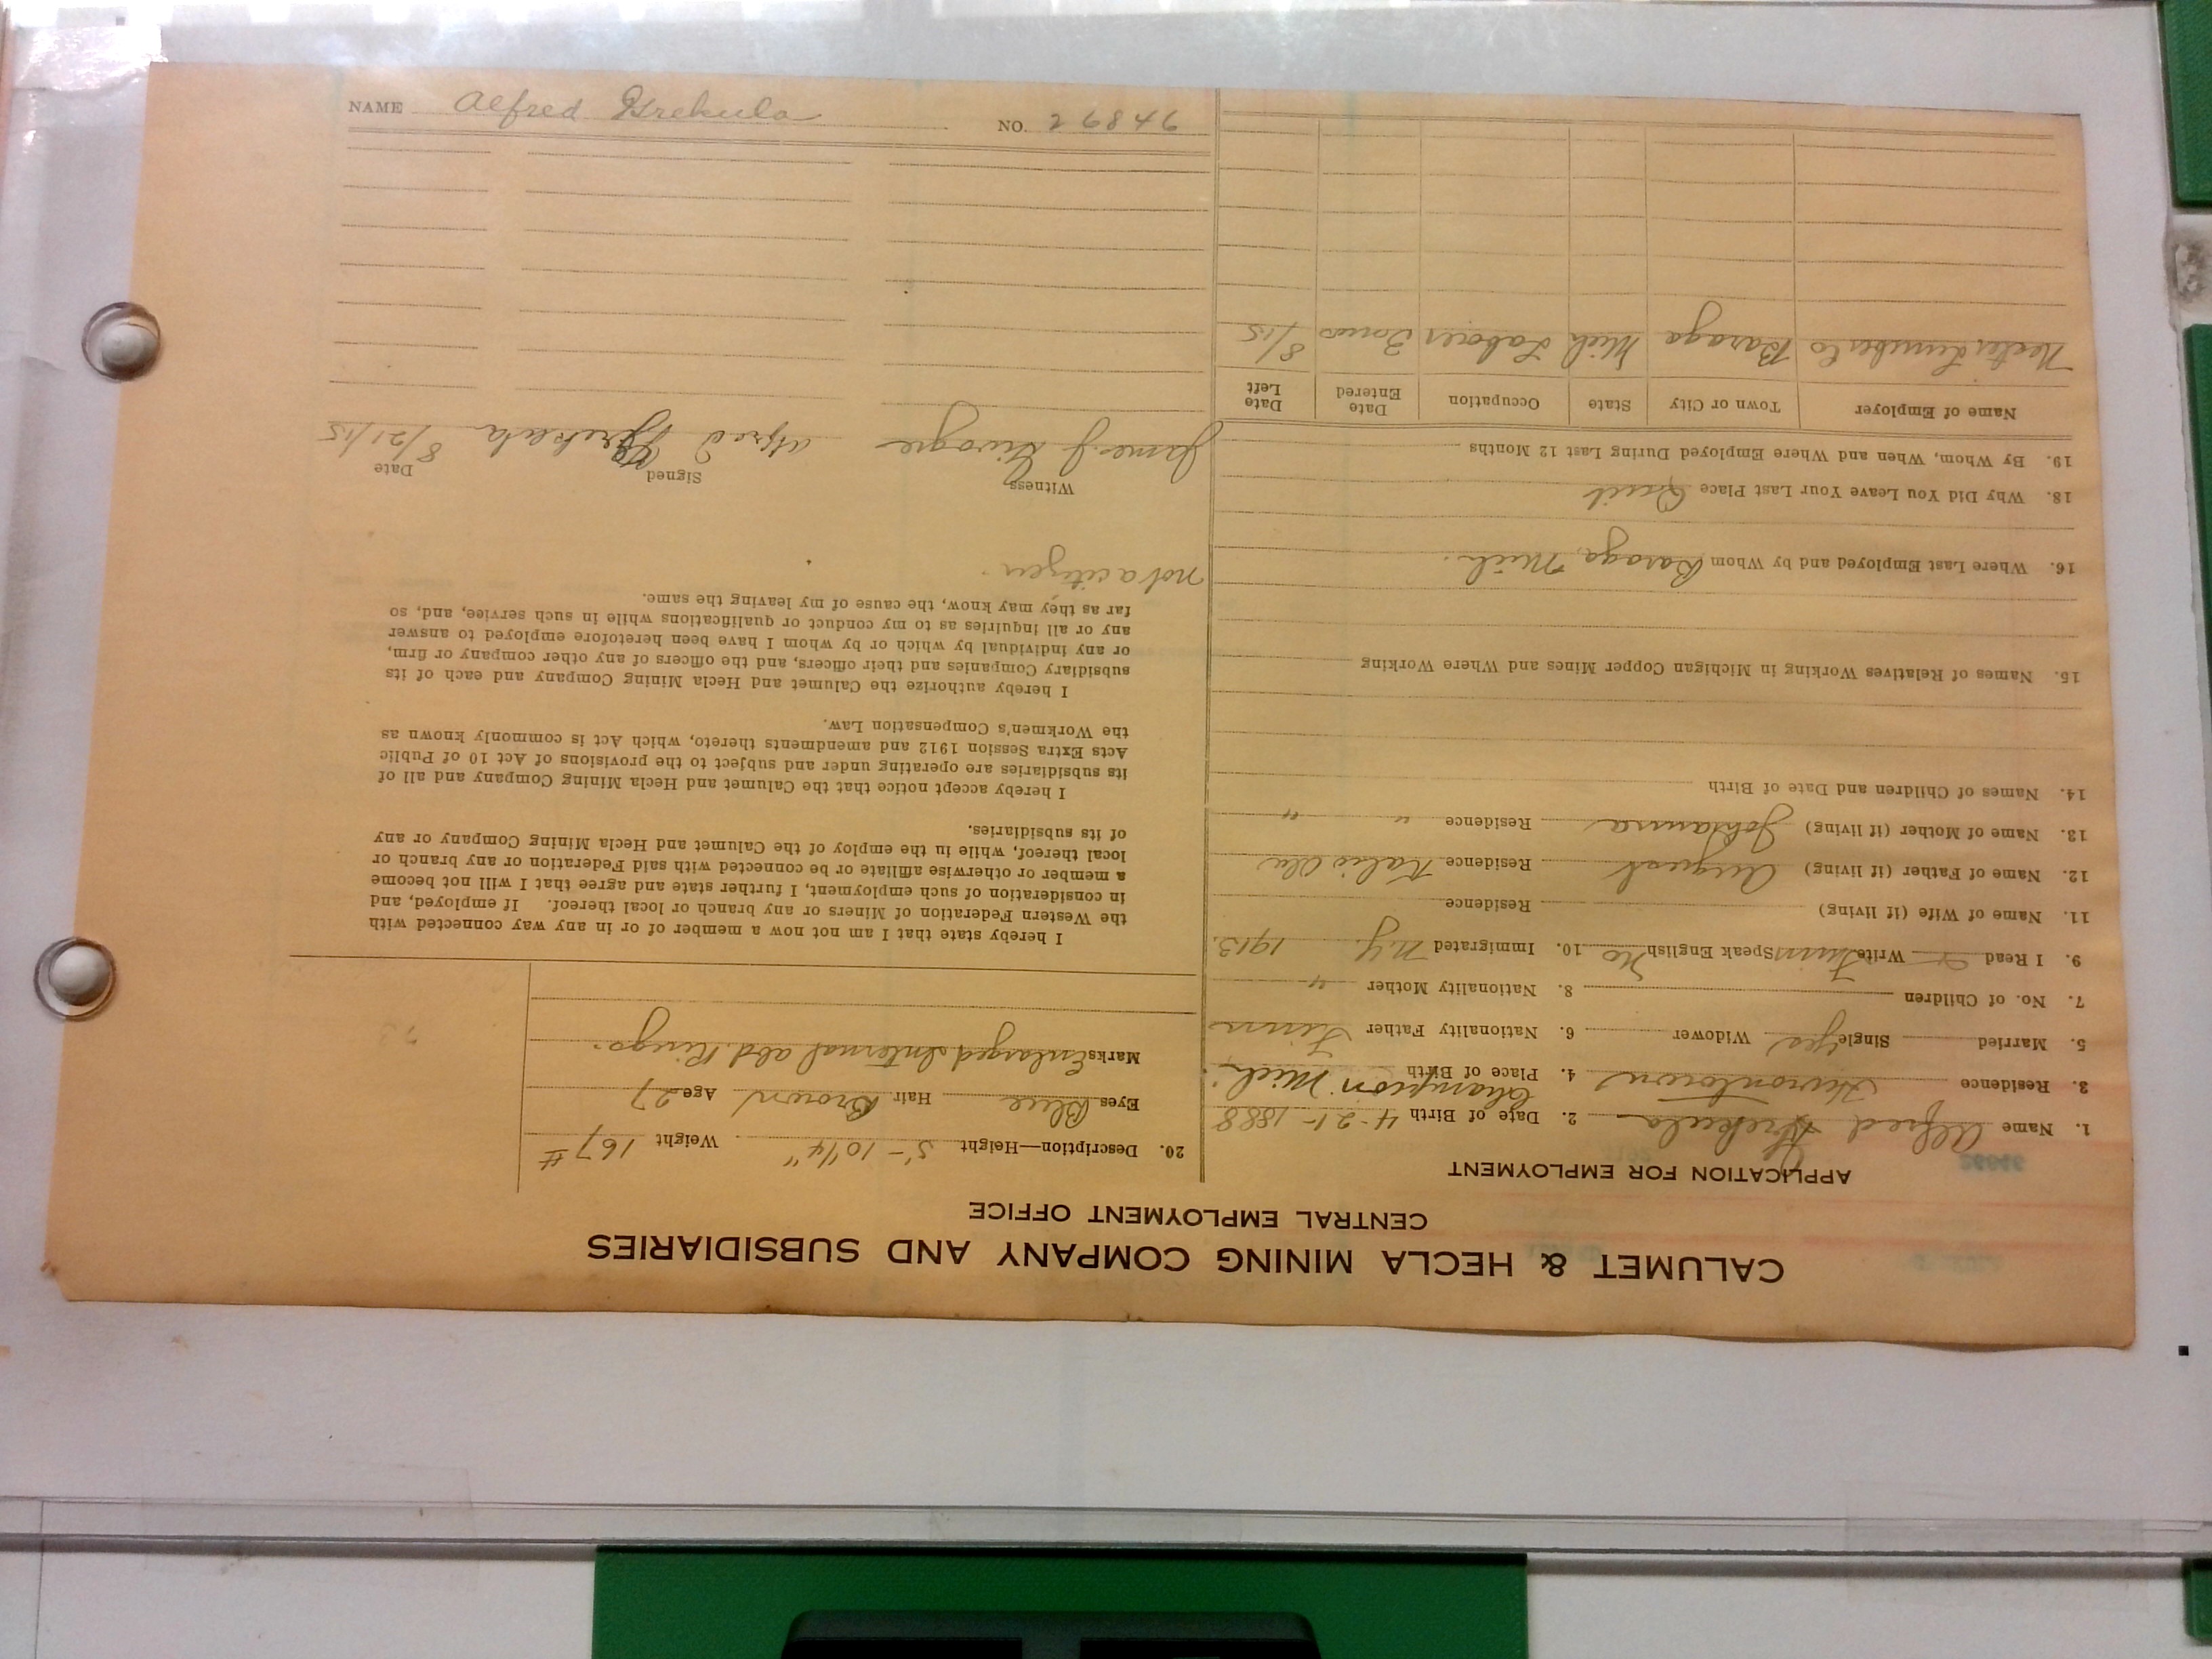 CALUMET & HECLA MINING COMPANY AND SUBSIDIARIES
CENTRAL EMPLOYMENT OFFICE
APPLICATION FOR EMPLOYMENT
1. Name Alfred 2. Date of Birth 4-21-1888
3. Residence Hurontown 4. Place of Birth Champion Mich.
5. Married Single yes Widower 6. Nationality Father Finn
7. No. of Children 8. Nationality Mother "
9. I Read & Write Finn Speak English No 10. Immigrated N.Y. 1913.
11. Name of Wife (if living) Residence
12. Name of Father (if living) August Residence
13. Name of Mother (if living) Johanna Residence " "
14. Names of Children and Date of Birth
15. Names of Relatives Working in Michigan Copper Mines and Where Working
16. Where Last Employed and by Whom Baraga, Mich.
18. Why Did You Leave Your Last Place Quit
19. By Whom, When and Where Employed During Last 12 Months
Name of Employer Town or City State Occupation Date Entered Date Left
Nester Lumber Co Baraga Mich Laborer 3 mos 8/15
20. Description—Height 5'-10 1/4" Weight 167#
Eyes Blue Hair Brown Age 27
Marks Enlarged Internal abd. Rings.
I hereby state that I am not now a member of or in any way connected with
the Western Federation of Miners or any branch or local thereof. If employed, and
in consideration of such employment, I further state and agree that I will not become
a member or otherwise affiliate or be connected with said Federation or any branch or
local thereof, while in the employ of the Calumet and Hecla Mining Company or any
of its subsidiaries.
I hereby accept notice that the Calumet and Hecla Mining Company and all of
its subsidiaries are operating under and subject to the provisions of Act 10 of Public
Acts Extra Session 1912 and amendments thereto, which Act is commonly known as
the Workmen's Compensation Law.
I hereby authorize the Calumet and Hecla Mining Company and each of its
subsidiary Companies and their officers, and the officers of any other company or firm,
or any individual by which or by whom I have been heretofore employed to answer
any or all inquiries as to my conduct or qualifications while in such service, and, so
far as they may know, the cause of my leaving the same.
not a citizen.
Witness Signed Date
James J. Alfred 8/21/15
NAME Alfred NO. 26846